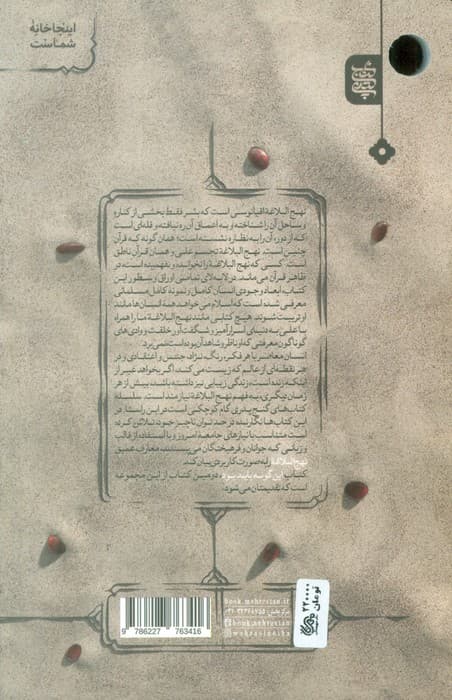 اینجا خانهٔ
شماست
نهج البلاغة اقیانوسی است که بشر فقط بخشی از کناره
و ساحل آن را شناخته و به اعماق آن ره نیافته و قله‌ای است
که از دور، آن را به نظاره نشسته است؛ همان گونه که قرآن
چنین است. نهج البلاغة تجسم علی و همان قرآن ناطق
است. کسی که نهج البلاغة را نخوانده و نفهمیده است در
ظاهر قرآن می‌ماند. در لابه‌لای تمامی اوراق و سطور این
کتاب، ابعاد وجودی انسان کامل و نمونهٔ کامل مسلمانی
معرفی شده است که اسلام می‌خواهد همهٔ انسان‌ها مانند
او تربیت شوند. هیچ کتابی مانند نهج البلاغة ما را همراه
با علی به دنیای اسرارآمیز و شگفت‌آور خلقت و وادی‌های
گوناگون معرفتی که او ناظر و شاهد آن بوده است نمی‌برد.
انسان معاصر با هر فکر، رنگ، نژاد، جنس و اعتقادی و در
هر نقطه‌ای از عالم که زیست می‌کند، اگر بخواهد غیر از
اینکه زنده است، زندگی زیبایی نیز داشته باشد، بیش از هر
زمان دیگری، به فهم نهج البلاغة نیازمند است. سلسله
کتاب‌های گنج پدری گام کوچکی است در این راستا. در
این کتاب‌ها نگارنده در حد توان ناچیز خود تلاش کرده
است متناسب با نیازهای جامعهٔ امروز و با استفاده از قالب
و زبانی که جوانان و فرهیختگان می‌پسندند، معارف عمیق
نهج البلاغة را به صورت کاربردی بیان کند.
کتاب این گونه باید بود، دومین کتاب از این مجموعه
است که تقدیمتان می‌شود.
book.mehrestan.ir
book.mehrestan
9 786227 763416
۲۲۰۰۰۰
تومان